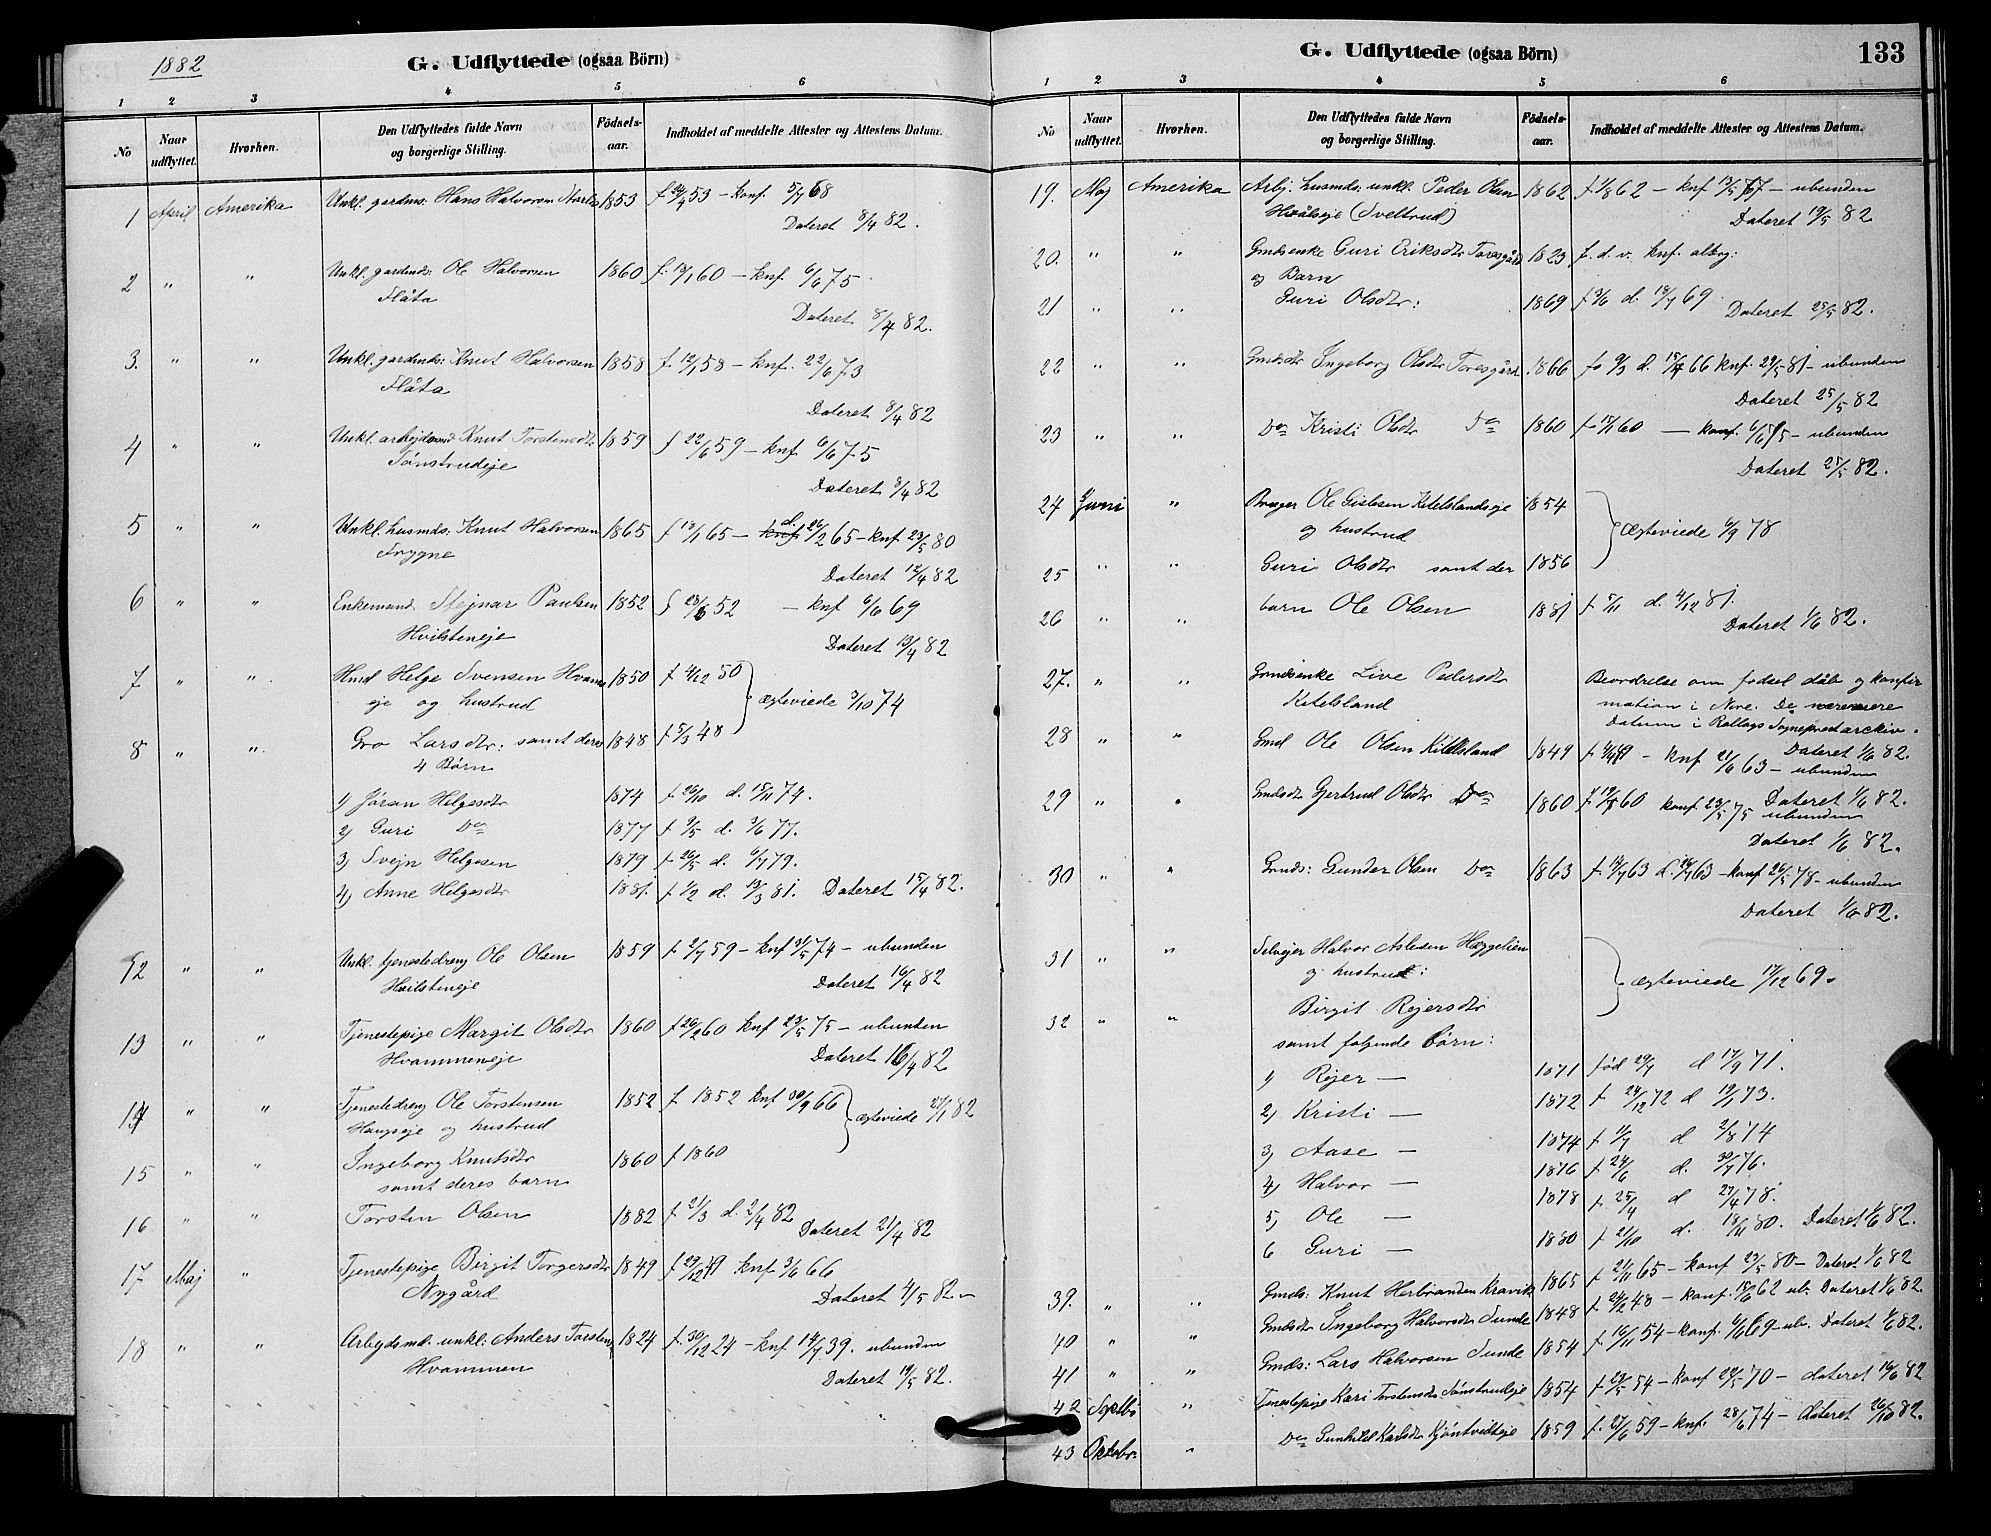 1882
G. Udflyttede (ogsaa Börn)
1 2 3 4 5 6
No Naar udflyttet. Hvorhen. Den Udflyttedes fulde Navn og borgerlige Stilling. Födsels-aar. Indholdet af meddelte Attester og Attestens Datum.
1 April Amerika Unkl. gardms: Hans Halvorsen 1853 f. 24/4 53 – konf. 5/7 68
Dateret 8/4 82.
2 " " Unkl. gardmds: Ole Halvorsen 1860 f. 13/1 60 – knf. 6/6 75.
Flåta
Dateret 8/4 82.
3. " " Unkl. gardmds: Knut Halvorsen 1858 f 12/1 58 – knf. 22/6 73
Flåta
Dateret 8/4 82
4 " " Unkl. Knut Torstensdtr 1859 f 22/6 59 – knf 6/6 75
Tønstrudeje
Dateret 8/4 82
5 " " Unkl. husmds: Knut Halvorsen 1865 f 18/1 65 – d. 26/2 65 – knf 23/5 80
Frygne
Dateret 12/4 82
6 " " Enkemand Stejnar Paulsen 1852 f 23/6 52 – knf 6/6 69
Hvilsteneje
Dateret 13/4 82
7 " " Hmd Helge Svensen Hvamm 1850 f 4/12 50
eje og hustrud ægteviede 3/10 74
8 " " Gro Larsdtr: samt deres 1848 f 5/3 48
4 Børn
1) Jøran Helgesdtr 1874 f 26/10 d. 15/11 74.
2) Guri Do 1877 f 9/5 d. 3/6 77.
3) Svejn Helgesen 1879 f 26/5 d. 6/7 79.
4) Anne Helgesdtr 1881. f 1/2 d. 13/3 81. Dateret 15/4 82.
12 " " Unkl. tjenestedreng Ole Olsen 1859 f 2/7 59 – knf 31/5 74 – ubunden
Hvilsteneje
Dateret 16/4 82
13 " " Tjenestepige Margit Olsdtr 1860 f 26/2 60 knf 23/5 75 – ubunden
Hvammeneje
Dateret 16/4 82
14 " " Tjenestedreng Ole Torstensen 1852 f. 1852 knf 30/9 66
Haugseje og hustrud ægteviede 27/1 82
15 " " Ingeborg Knutsdtr 1860 f 1860
samt deres barn
16 " " Torsten Olsen 1882 f 21/3 d. 2/4 82
Dateret 21/4 82
17 Maj " Tjenestepige Birgit Torgersdtr 1849 f 29/12 49 knf 3/6 66
Nygård
Dateret 4/5 82 –
18 " " Arbejdsmd. unkl: Anders Torstens. 1824 f. 30/12 24 – knf 14/7 39. ubunden
Hvammen
Dateret 19/5 82.
G. Udflyttede (ogsaa Börn) 133
1 2 3 4 5 6
No Naar udflyttet. Hvorhen. Den Udflyttedes fulde Navn og borgerlige Stilling. Födsels-aar. Indholdet af meddelte Attester og Attestens Datum.
19. Maj Amerika Arbj. husmds: unkl. Peder Olsen 1862 f 1/8 62 – knf 13/5 77 – ubunden
(Sveltrud)
Dateret 19/5 82
20. " " Gmdsenke Guri Eriksdtr Toresgård 1823 f. d. v. knf. altog:
og Barn
21 " " Guri Olsdtr: 1869 f 3/6 d. 18/7 69 Dateret 25/5 82.
22 " " Gmdsdtr Ingeborg Olsdtr Toresgård. 1866 f. 9/3 d. 15/4 66 knf. 29/5 81 – ubunden
Dateret 25/5 82
23 " " Do Kristi Olsdtr Do 1860 f 15/1 60 – konf. 6/6 75 – ubunden
Dateret 25/5 82.
24 Juni " Ole Gislesen Kitelslandseje 1854
og hustrud ægteviede 6/9 78
25 " " Guri Olsdtr samt der 1856
26 " " barn Ole Olsen 1881 f 5/11 d. 4/12 81.
Dateret 1/6 82.
27. " " Gmdsenke Live Pedersdtr Beordrelse om fødsel dåb og konfir
Kitelsland mation i Nore. De nærmere
Datum i Rollags Sogneprestarckiv.
28 " " Gmd Ole Olsen Kitelsland 1849 f 4/4 49 – knf 21/6 63 – ubunden
Dateret 1/6 82.
29 " " Gmdsdtr Gjertrud Olsdtr Do 1860 f 19/5 60 konf. 23/5 75 ubunden
Dateret 1/6 82.
Dateret 1/6 82.
30 " " Gmds: Gunder Olsen Do 1863 f 14/7 63 d. 26/7 63 – konf 26/5 78 – ubunden
Dateret 1/6 82.
31 " " Selvejer Halvor Aslesen Hæggelien
og hustrud: ægteviede 17/12 69.
32 " " Birgit Rejersdtr
samt følgende børn:
1) Rejer – 1871 fød 29/7 d 17/9 71.
2) Kristi – 1872 f 24/12 72 d 19/1 73.
3) Aase – 1874 f 11/7 d 2/8 74
4) Halvor – 1876 f 24/6 d. 30/7 76.
5) Ole – 1878 f 25/4 d 27/4 78.
6 Guri – 1880 f 21/10 d. 18/11 80. Dateret 1/6 82.
39. " " Gmds: Knut Herbrandsen Kravik 1865 f 21/11 65 – konf 23/5 80 – Dateret 1/6 82
40 " " Gmdsdtr Ingeborg Halvorsdtr Sunde 1848 f 24/2 48 – konf. 15/6 62 ub. Dateret 1/6 82.
41 " " Gmds: Lars Halvorsen Sunde 1854 f 16/11 54 – konf. 6/6 69 – ub. Dateret 1/6 82.
42 Septbr " Tjenestepige Kari Torstensdtr Tønstrudeje 1854 f 23/5 54 – konf 29/5 70 – dateret 16/6 82
43 Oktober " Do Gunhild Karlsdtr Kjøntvedteje 1859 f. 27/6 59 – knf. 28/6 74 – dateret 26/10 82.